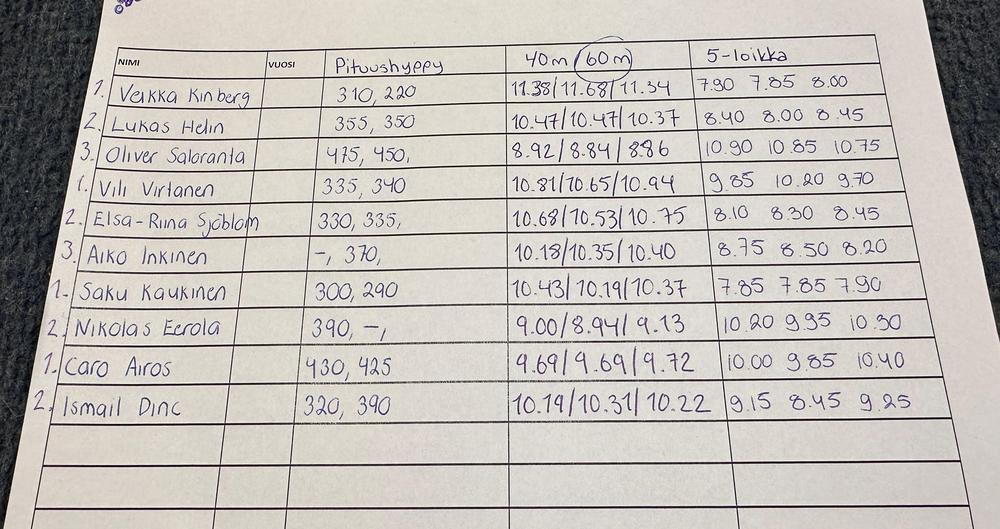 NIMI VUOSI Pituushyppy 40m/60m 5-loikka
1. Veikka Kinberg 310, 220 11.38/11.68/11.34 7.90 7.85 8.00
2. Lukas Helin 355, 350 10.47/10.47/10.37 8.40 8.00 8.45
3. Oliver Saloranta 475, 450, 8.92/8.84/8.86 10.90 10.85 10.75
1. Vili Virtanen 335, 340 10.81/10.65/10.94 9.85 10.20 9.70
2. Elsa-Riina Sjöblom 330, 335, 10.68/10.53/10.75 8.10 8.30 8.45
3. Aiko Inkinen -, 370, 10.18/10.35/10.40 8.75 8.50 8.20
1. Saku Kaukinen 300, 290 10.43/10.19/10.37 7.85 7.85 7.90
2. Nikolas Eerola 390, -, 9.00/8.94/9.13 10.20 9.95 10.30
1. Caro Airos 430, 425 9.69/9.69/9.72 10.00 9.85 10.40
2. Ismail Dinc 320, 390 10.19/10.31/10.22 9.15 8.45 9.25